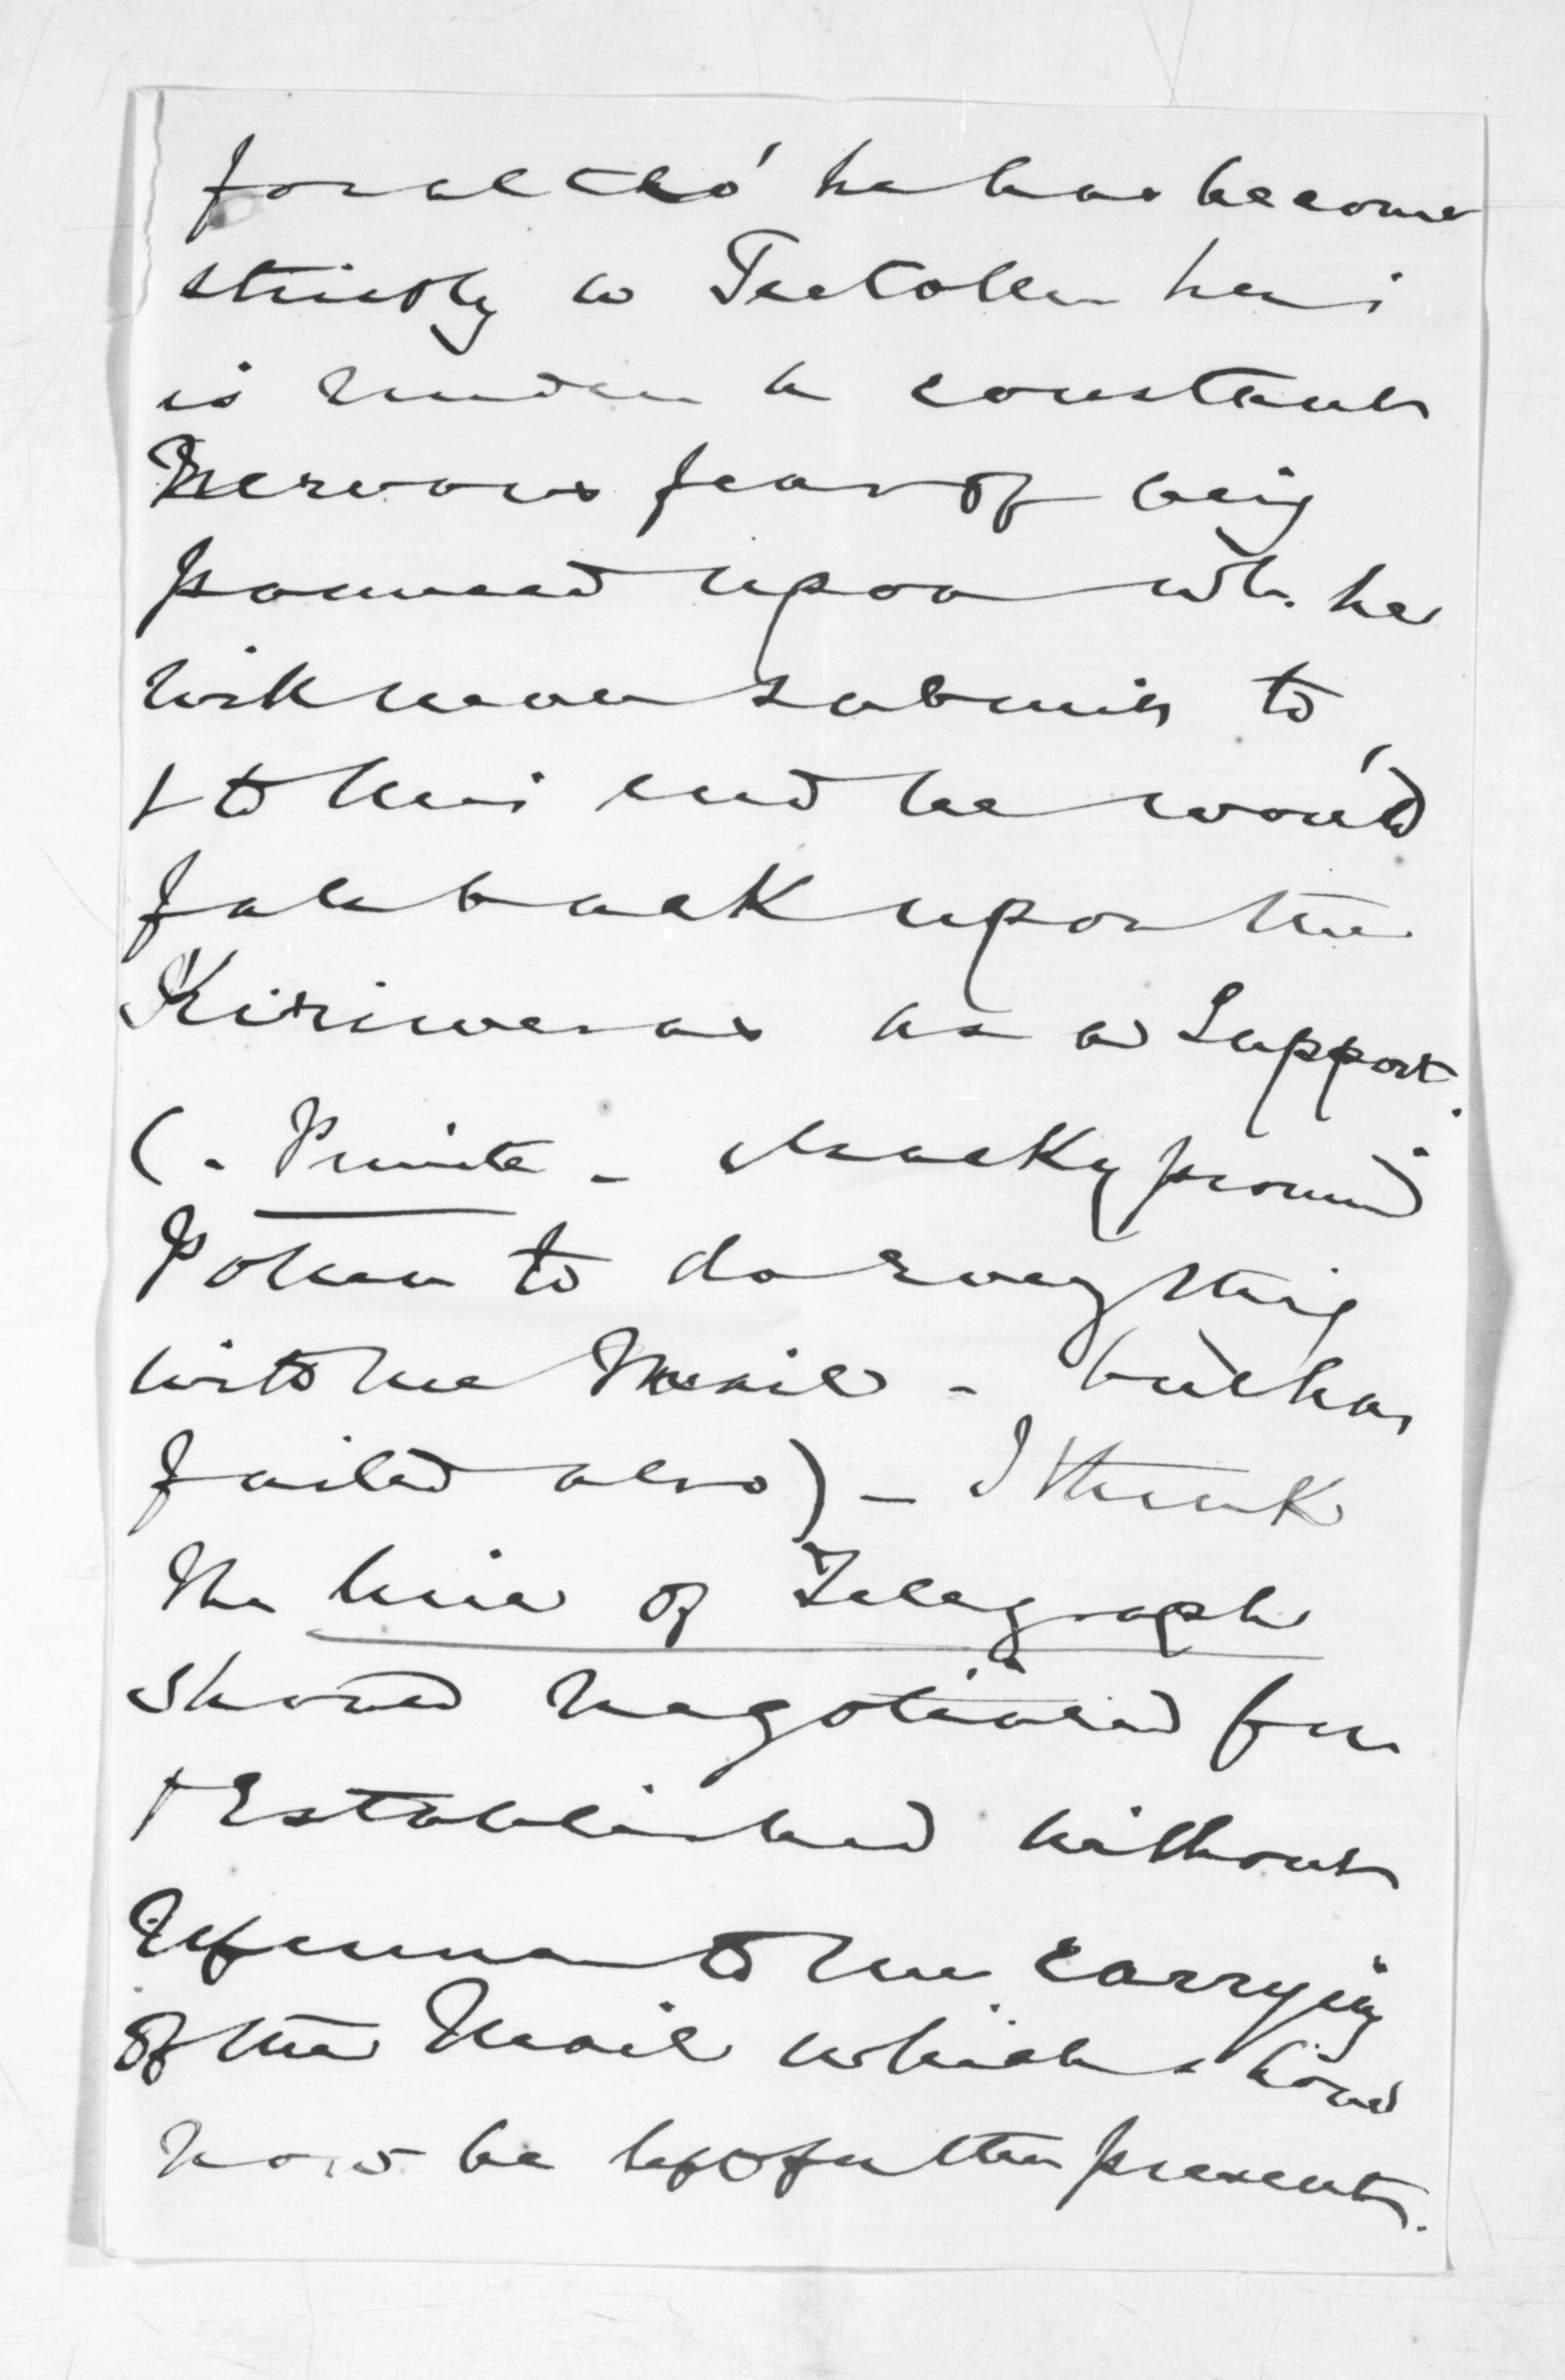 for altho' he has become
strictly a Teetotaller he
is under a constant
Nervous fear of being
pounced upon wh. he
will never submit to
& to this end he would
fall back upon the
Kiriweras as a Support.
(- Private - Macky promised
Potene to do everything
with the Mail - but has
failed also) - I think
the line of Telegraph
should negotiated for
& Established without
Reference to the carrying
of the Mail which should
now be left for the present.